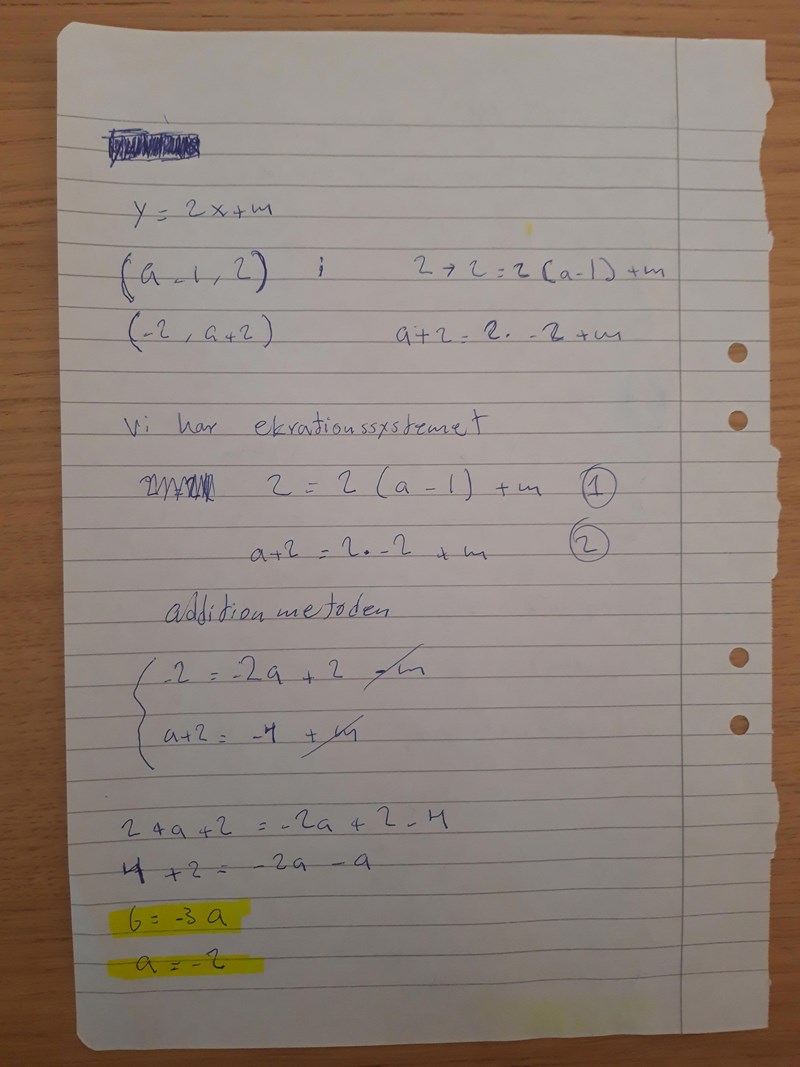 y = 2x+m
(a-1, 2) i 2 → 2 = 2(a-1) +m
(-2, a+2) a+2 = 2. -2 +m
Vi har ekvationssystemet
2 = 2 (a-1) +m ①
a+2 = 2. -2 + m ②
addition metoden
-2 = -2a + 2 -m
a+2 = -4 + m
2 + a + 2 = -2a + 2 - 4
4 + 2 = -2a - a
6 = -3a
a = -2